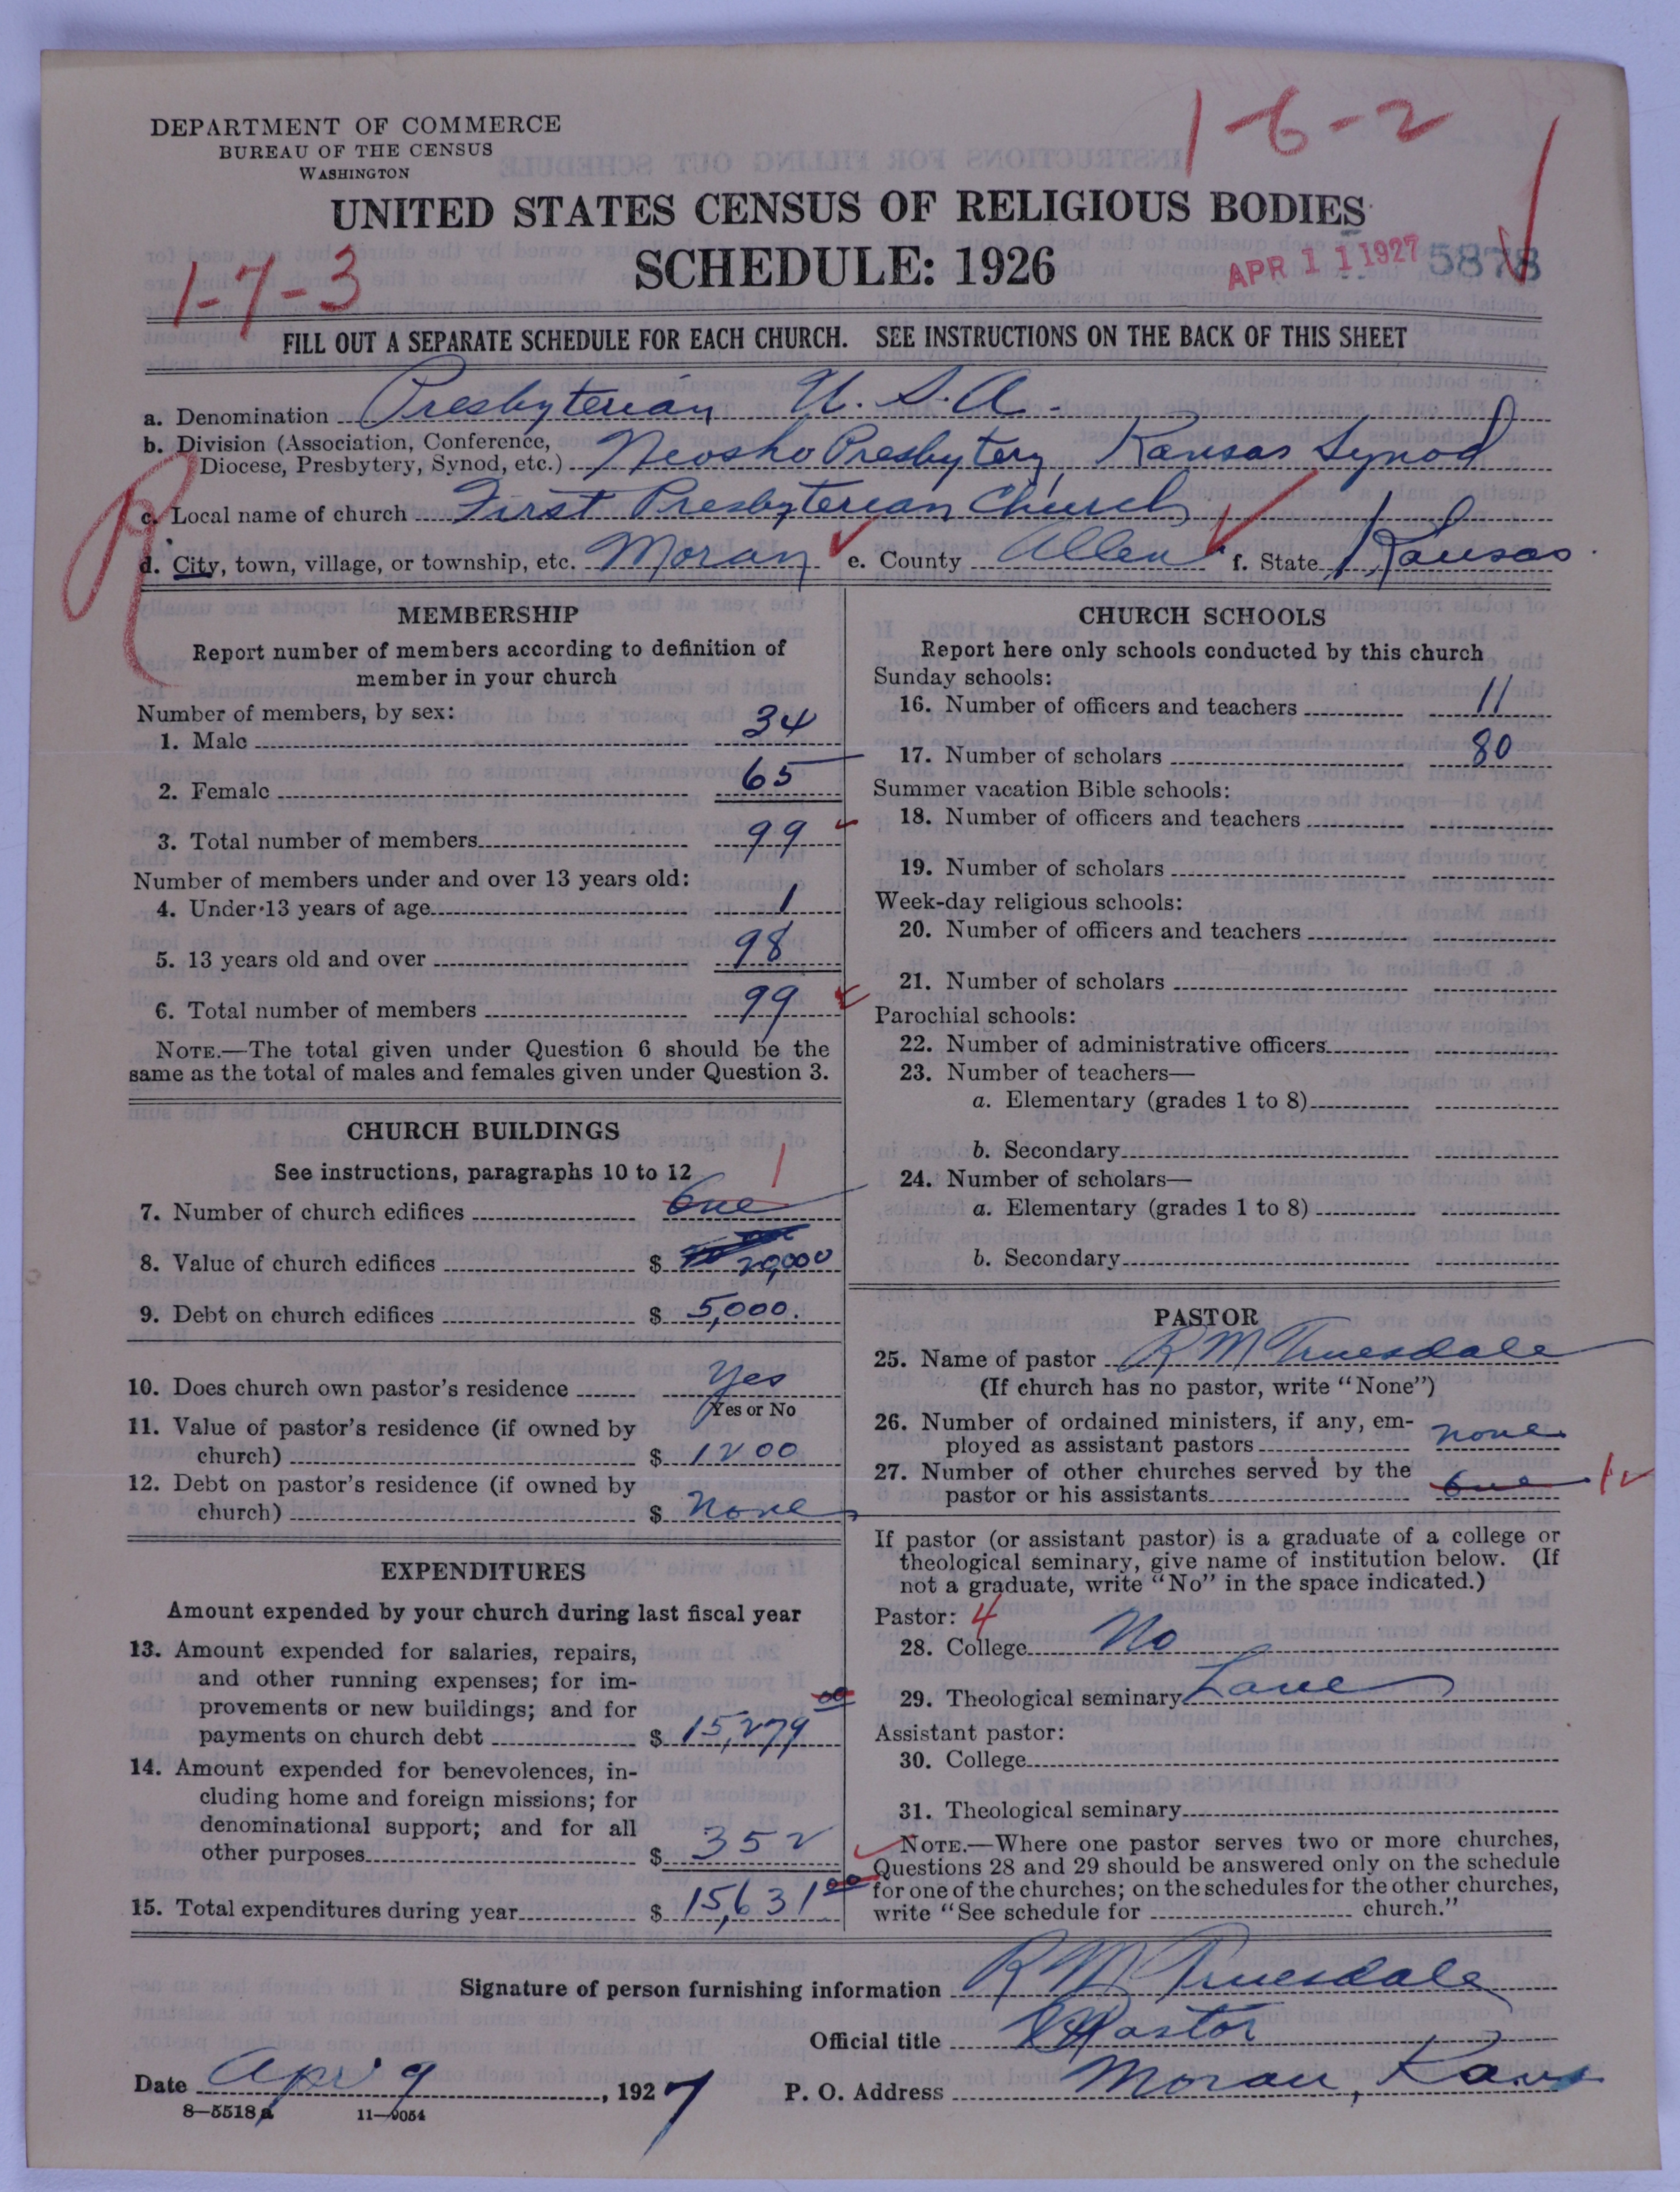 1-6-2
DEPARTMENT OF COMMERCE
BUREAU OF THE CENSUS
WASHINGTON
UNITED STATES CENSUS OF RELIGIOUS BODIES
SCHEDULE: 1926
APR 11 1927 5878
1-7-3
FILL OUT A SEPARATE SCHEDULE FOR EACH CHURCH. SEE INSTRUCTIONS ON THE BACK OF THIS SHEET
a. Denomination Presbyterian U.S.A.
b. Division (Association, Conference,
Diocese, Presbytery, Synod, etc.) Neosho Presbytery, Kansas Synod
c. Local name of church First Presbyterian Church
d. City, town, village, or township, etc. Moran e. County Allen f. State Kansas
MEMBERSHIP
Report number of members according to definition of
member in your church
Number of members, by sex:
1. Male 34
2. Female 65
3. Total number of members 99
Number of members under and over 13 years old:
4. Under 13 years of age 1
5. 13 years old and over 98
6. Total number of members 99
NOTE.—The total given under Question 6 should be the
same as the total of males and females given under Question 3.
CHURCH BUILDINGS
See instructions, paragraphs 10 to 12
7. Number of church edifices One 1
8. Value of church edifices $ 20,000
9. Debt on church edifices $ 5,000.
10. Does church own pastor's residence Yes
Yes or No
11. Value of pastor's residence (if owned by
church) $ 1200
12. Debt on pastor's residence (if owned by
church) $ None
EXPENDITURES
Amount expended by your church during last fiscal year
13. Amount expended for salaries, repairs,
and other running expenses; for im-
provements or new buildings; and for
payments on church debt $ 15,279 00
14. Amount expended for benevolences, in-
cluding home and foreign missions; for
denominational support; and for all
other purposes $ 352
15. Total expenditures during year $ 15,631 00
CHURCH SCHOOLS
Report here only schools conducted by this church
Sunday schools:
16. Number of officers and teachers 11
17. Number of scholars 80
Summer vacation Bible schools:
18. Number of officers and teachers
19. Number of scholars
Week-day religious schools:
20. Number of officers and teachers
21. Number of scholars
Parochial schools:
22. Number of administrative officers
23. Number of teachers—
a. Elementary (grades 1 to 8)
b. Secondary
24. Number of scholars—
a. Elementary (grades 1 to 8)
b. Secondary
PASTOR
25. Name of pastor R M Truesdale
(If church has no pastor, write "None")
26. Number of ordained ministers, if any, em-
ployed as assistant pastors none
27. Number of other churches served by the
pastor or his assistants one 1
If pastor (or assistant pastor) is a graduate of a college or
theological seminary, give name of institution below. (If
not a graduate, write "No" in the space indicated.)
Pastor: 4
28. College No
29. Theological seminary Lane
Assistant pastor:
30. College
31. Theological seminary
NOTE.—Where one pastor serves two or more churches,
Questions 28 and 29 should be answered only on the schedule
for one of the churches; on the schedules for the other churches,
write "See schedule for church."
Signature of person furnishing information R M Truesdale
Official title Pastor
Date Apr 9, 1927 P. O. Address Moran, Kans
8-5518a 11-9054